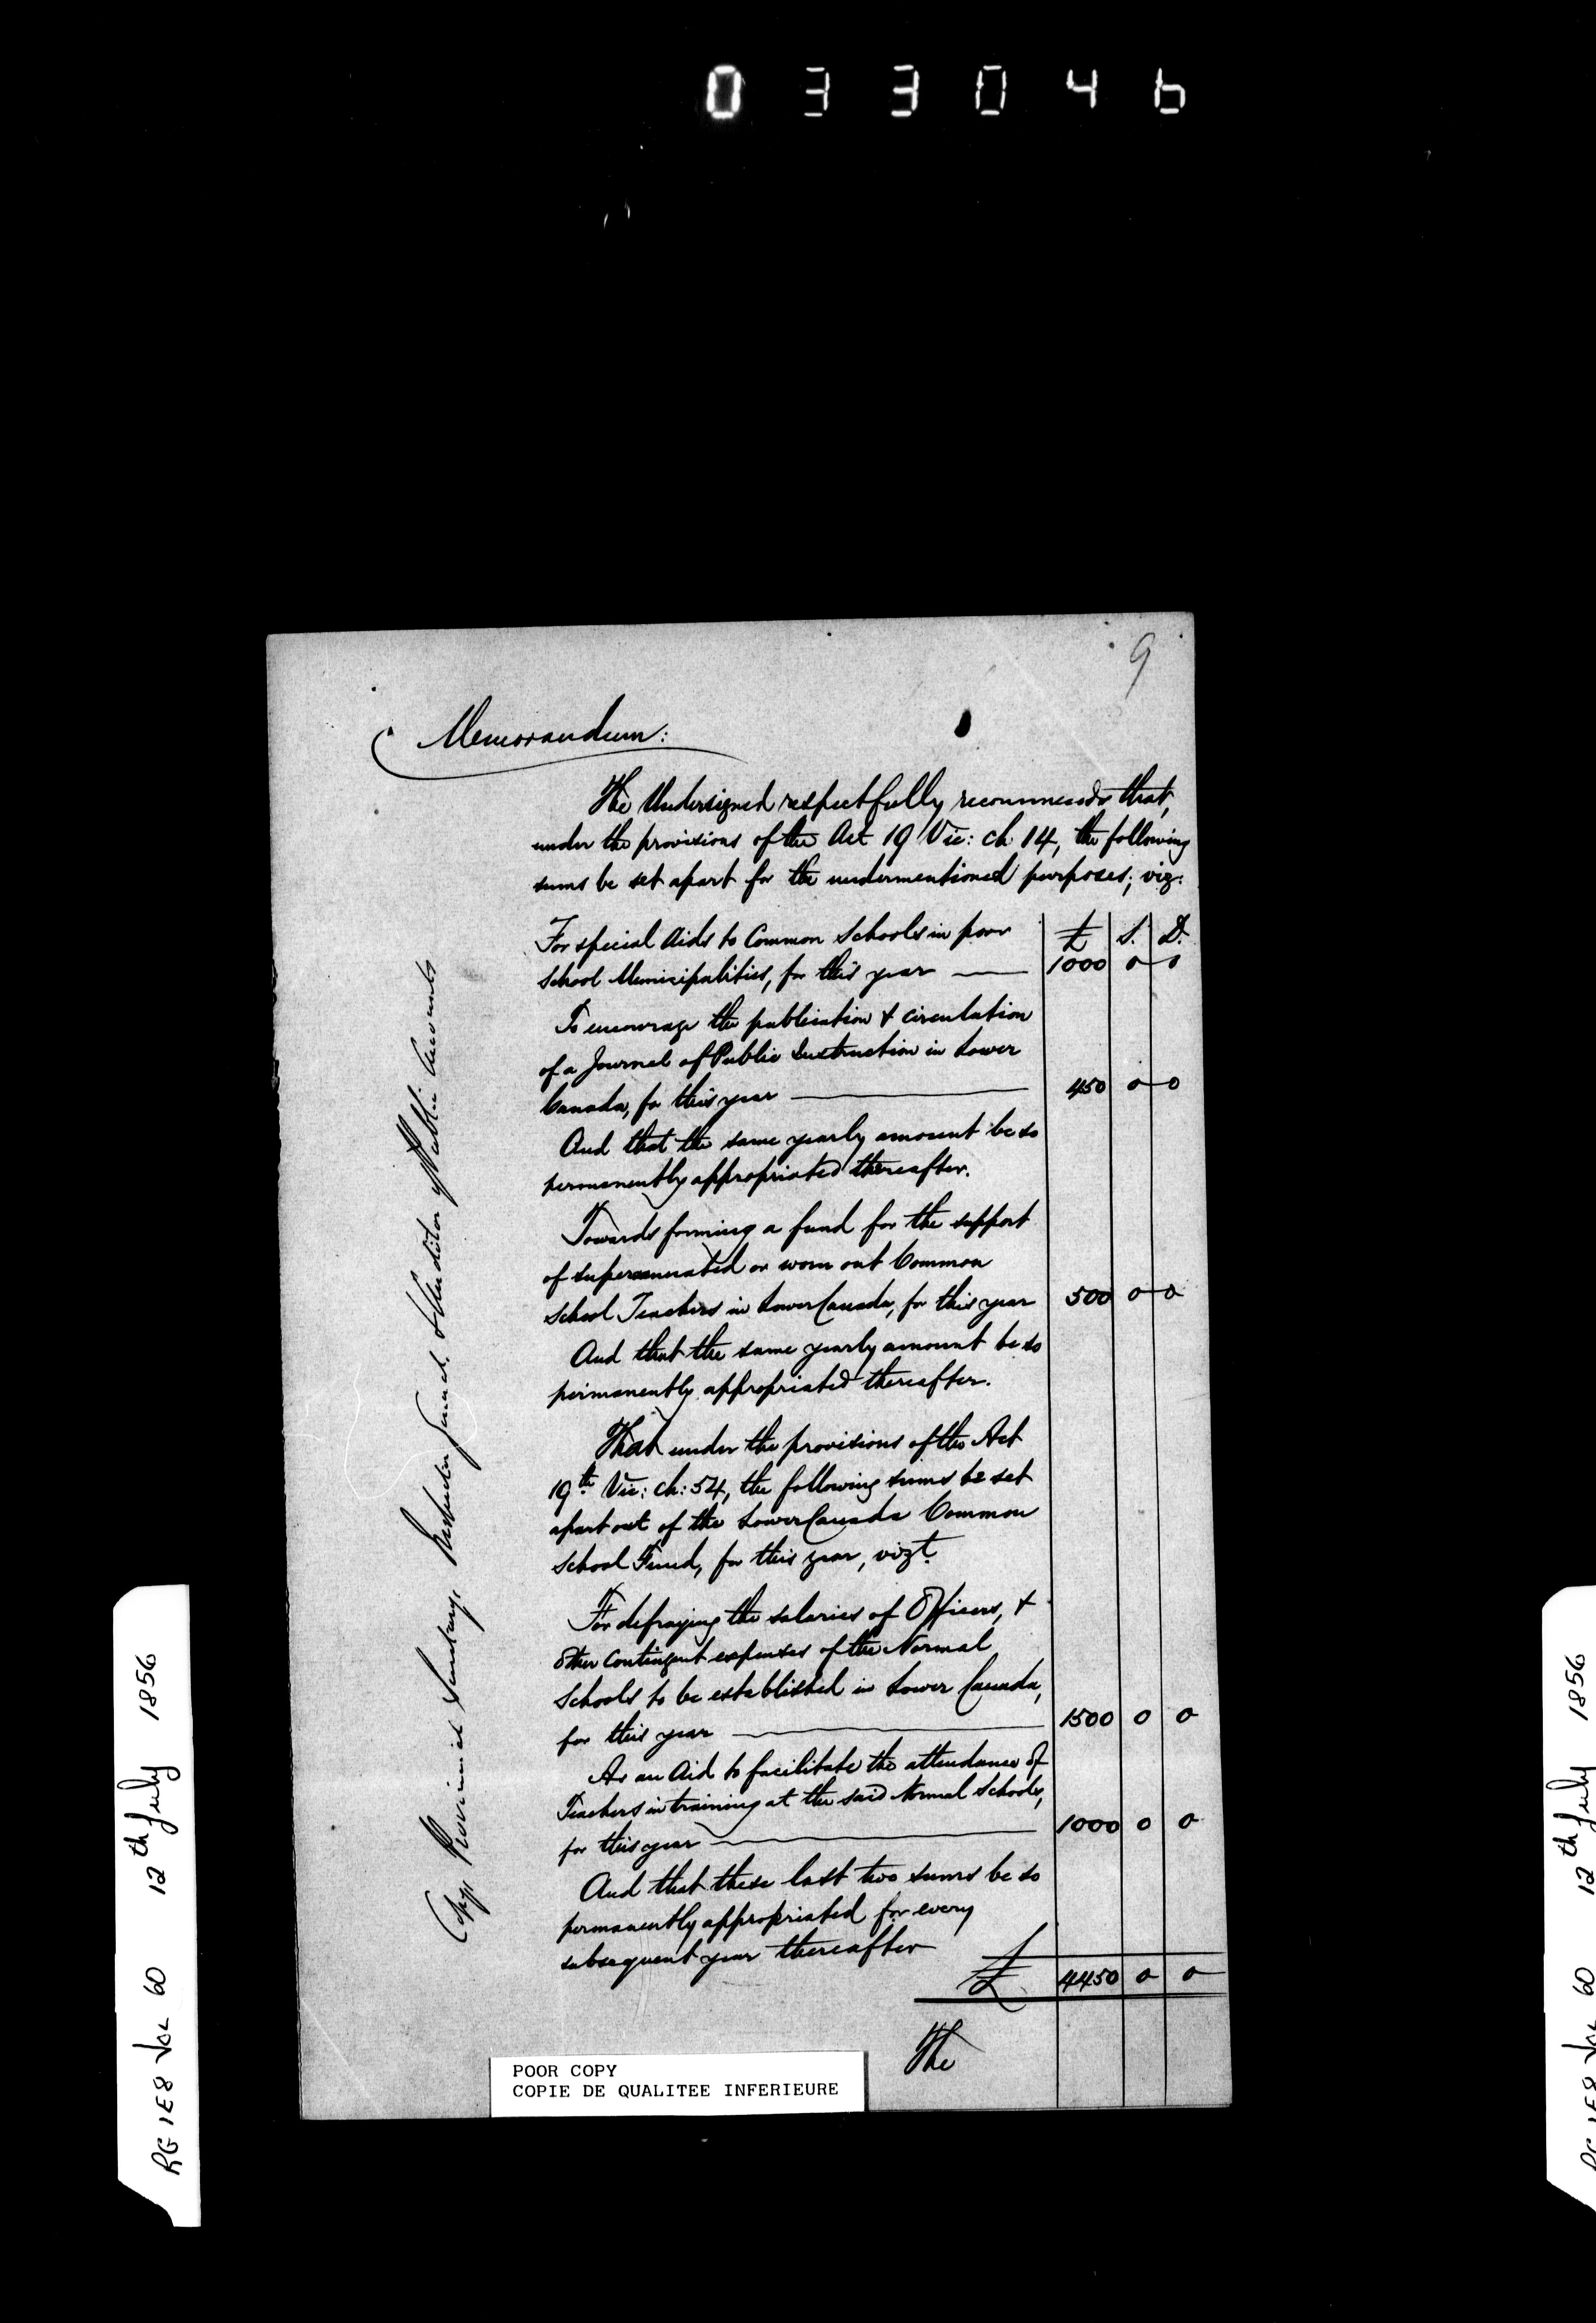 033046
9
Memorandum:
The Undersigned respectfully recommends that,
under the provisions of the Act 19 Vic: ch 14, the following
sums be set apart for the undermentioned purposes; viz:
£ S. D.
For special Aids to Common Schools in poor
School Municipalities, for this year — 1000 0 0
To encourage the publication & circulation
of a Journal of Public Instruction in Lower
Canada, for this year — 450 0 0
And that the same yearly amount be so
permanently appropriated thereafter.
Towards forming a fund for the support
of superannuated or worn out Common
School Teachers in Lower Canada, for this year 500 0 0
And that the same yearly amount be so
permanently appropriated thereafter.
That under the provisions of the Act
19th Vic: ch: 54, the following sums be set
apart out of the Lower Canada Common
School Fund, for this year, vizt.
For defraying the salaries of Officers, &
other contingent expenses of the Normal
Schools to be established in Lower Canada,
for this year — 1500 0 0
As an Aid to facilitate the attendance of
Teachers in training at the said Normal Schools,
for this year — 1000 0 0
And that these last two sums be so
permanently appropriated for every
subsequent year thereafter
£ 4450 0 0
The
Copy Provincial Secretary, Inspector General & Auditor of Public Accounts
POOR COPY
COPIE DE QUALITEE INFERIEURE
RG 1E8 Vol 60 12th July 1856
RG 1E8 Vol 60 12th July 1856